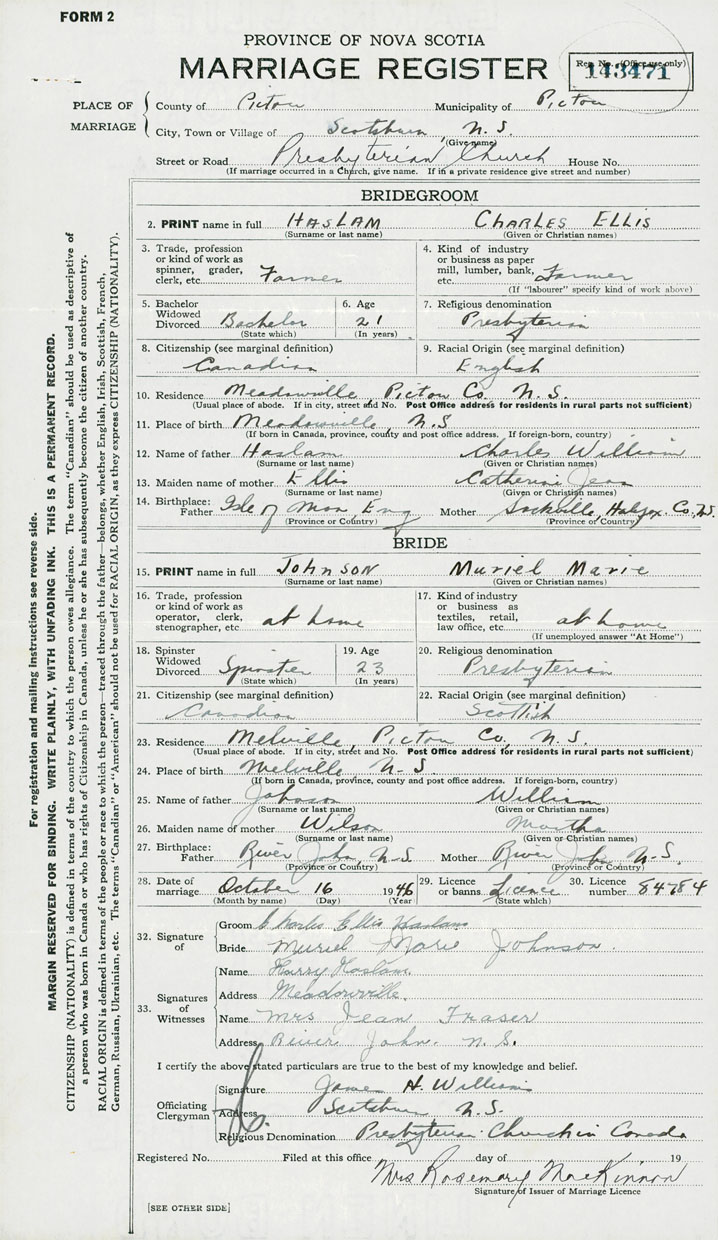 FORM 2
PROVINCE OF NOVA SCOTIA
MARRIAGE REGISTER
Reg. No. (Office use only)
143471
PLACE OF MARRIAGE
County of Pictou Municipality of Pictou
City, Town or Village of Scotsburn, N.S.
(Give name)
Street or Road Presbyterian Church House No.
(If marriage occurred in a Church, give name. If in a private residence give street and number)
BRIDEGROOM
2. PRINT name in full HASLAM CHARLES ELLIS
(Surname or last name) (Given or Christian names)
3. Trade, profession or kind of work as spinner, grader, clerk, etc. Farmer
4. Kind of industry or business as paper mill, lumber, bank, etc. Farmer
(If "labourer" specify kind of work above)
5. Bachelor Widowed Divorced Bachelor
(State which)
6. Age 21
(In years)
7. Religious denomination
Presbyterian
8. Citizenship (see marginal definition)
Canadian
9. Racial Origin (see marginal definition)
English
10. Residence Meadowville, Pictou Co. N.S.
(Usual place of abode. If in city, street and No. Post Office address for residents in rural parts not sufficient)
11. Place of birth Meadowville, N.S.
(If born in Canada, province, county and post office address. If foreign-born, country)
12. Name of father Haslam Charles William
(Surname or last name) (Given or Christian names)
13. Maiden name of mother Ellis Catherine Jean
(Surname or last name) (Given or Christian names)
14. Birthplace: Father Isle of Man, Eng Mother Sackville, Halifax Co. N.S.
(Province or Country) (Province or Country)
BRIDE
15. PRINT name in full JOHNSON Muriel Marie
(Surname or last name) (Given or Christian names)
16. Trade, profession or kind of work as operator, clerk, stenographer, etc. at home
17. Kind of industry or business as textiles, retail, law office, etc. at home
(If unemployed answer "At Home")
18. Spinster Widowed Divorced Spinster
(State which)
19. Age 23
(In years)
20. Religious denomination
Presbyterian
21. Citizenship (see marginal definition)
Canadian
22. Racial Origin (see marginal definition)
Scottish
23. Residence Melville, Pictou Co, N.S.
(Usual place of abode. If in city, street and No. Post Office address for residents in rural parts not sufficient)
24. Place of birth Melville N-S.
(If born in Canada, province, county and post office address. If foreign-born, country)
25. Name of father Johnson William
(Surname or last name) (Given or Christian names)
26. Maiden name of mother Wilson Martha
(Surname or last name) (Given or Christian names)
27. Birthplace: Father River John, N.S. Mother River John N.S.
(Province or Country) (Province or Country)
28. Date of marriage October 16 1946
(Month by name) (Day) (Year)
29. Licence or banns Licence
(State which)
30. Licence number 84784
32. Signature of
Groom Charles Ellis Haslam
Bride Muriel Marie Johnson.
33. Signatures of Witnesses
Name Harry Haslam.
Address Meadowville.
Name Mrs Jean Fraser
Address River John. N.S.
I certify the above stated particulars are true to the best of my knowledge and belief.
Officiating Clergyman
Signature James H. Williams
Address Scotsburn N.S.
Religious Denomination Presbyterian Church in Canada
Registered No. Filed at this office day of 19
Mrs Rosemary MacKinnon
Signature of Issuer of Marriage Licence
[SEE OTHER SIDE]
For registration and mailing instructions see reverse side.
MARGIN RESERVED FOR BINDING. WRITE PLAINLY, WITH UNFADING INK. THIS IS A PERMANENT RECORD.
CITIZENSHIP (NATIONALITY) is defined in terms of the country to which the person owes allegiance. The term "Canadian" should be used as descriptive of
a person who was born in Canada or who has rights of Citizenship in Canada, unless he or she has subsequently become the citizen of another country.
RACIAL ORIGIN is defined in terms of the people or race to which the person—traced through the father—belongs, whether English, Irish, Scottish, French,
German, Russian, Ukrainian, etc. The terms "Canadian" or "American" should not be used for RACIAL ORIGIN, as they express CITIZENSHIP (NATIONALITY).